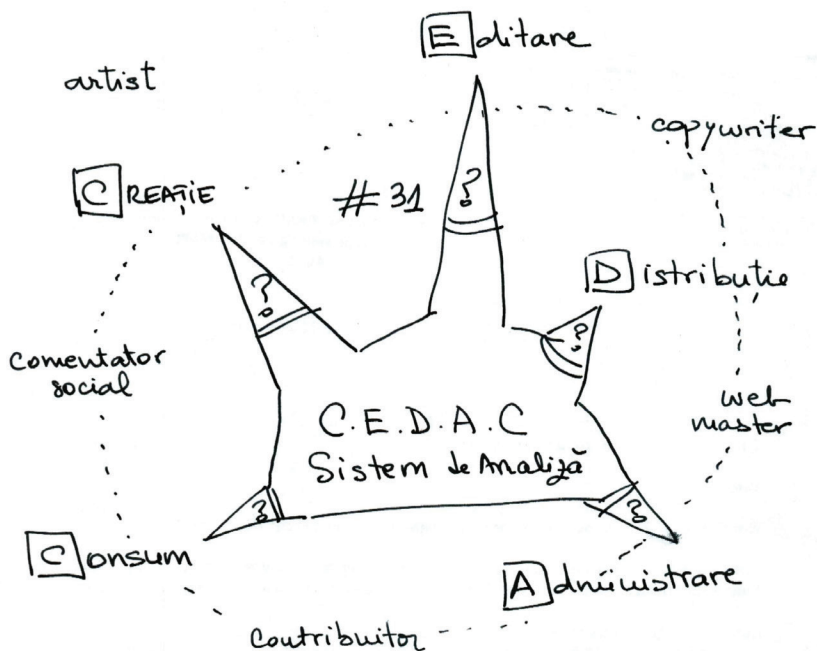 Editare
artist
copywriter
CREAȚIE
#31
?
?
Distributie
?
comentator
social
web
master
C.E.D.A.C
Sistem de Analiză
?
?
Consum
Administrare
Contribuitor